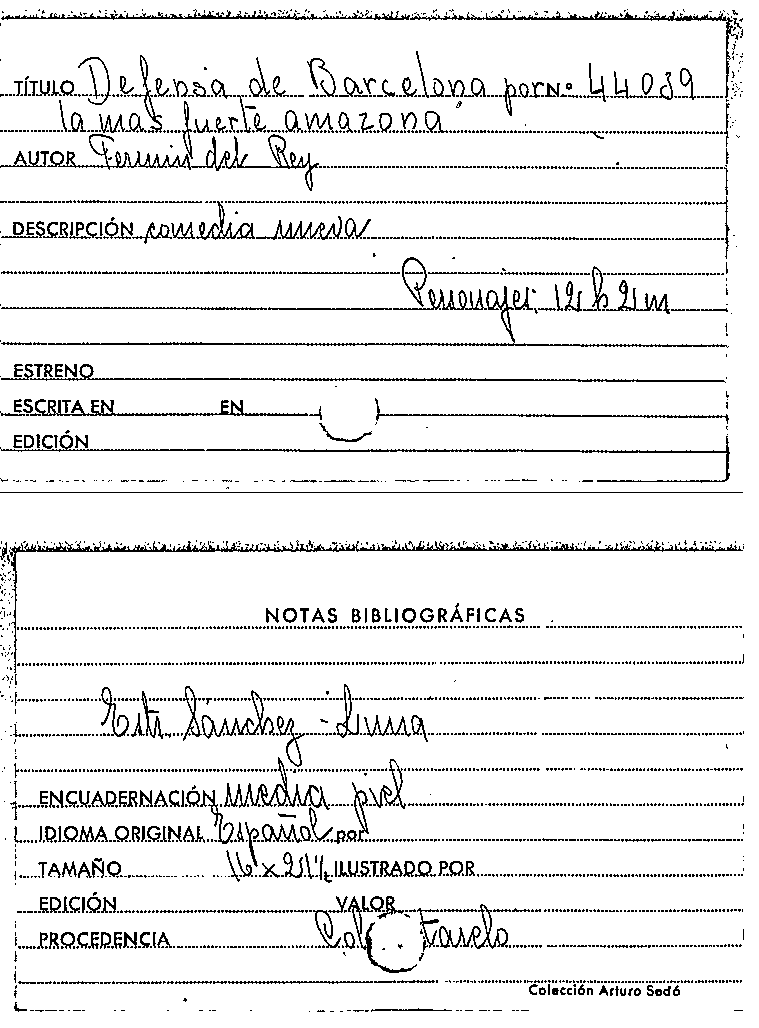 TÍTULO Defensa de Barcelona por Nº 44039
la mas fuerte amazona
AUTOR Fermin del Rey
DESCRIPCIÓN comedia nueva
Personajes, 12 h 2 m
ESTRENO
ESCRITA EN EN
EDICIÓN
NOTAS BIBLIOGRÁFICAS
Sánchez - Luna
ENCUADERNACIÓN media piel
IDIOMA ORIGINAL Español por
TAMAÑO 16 x 21½ ILUSTRADO POR
EDICIÓN VALOR
PROCEDENCIA
Colección Arturo Sedó